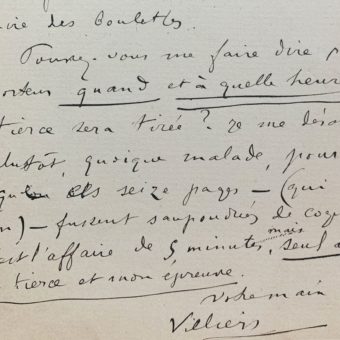 des Boulets.
Pouvez-vous me faire dire
porteur quand et à quelle heure
tierce sera tirée? Je me
plutôt, quoique malade, pour
seize pages — (qui
— fussent saupoudrées de
l'affaire de 5 minutes, mais seul
tierce et mon épreuve.
Votre main
Villiers